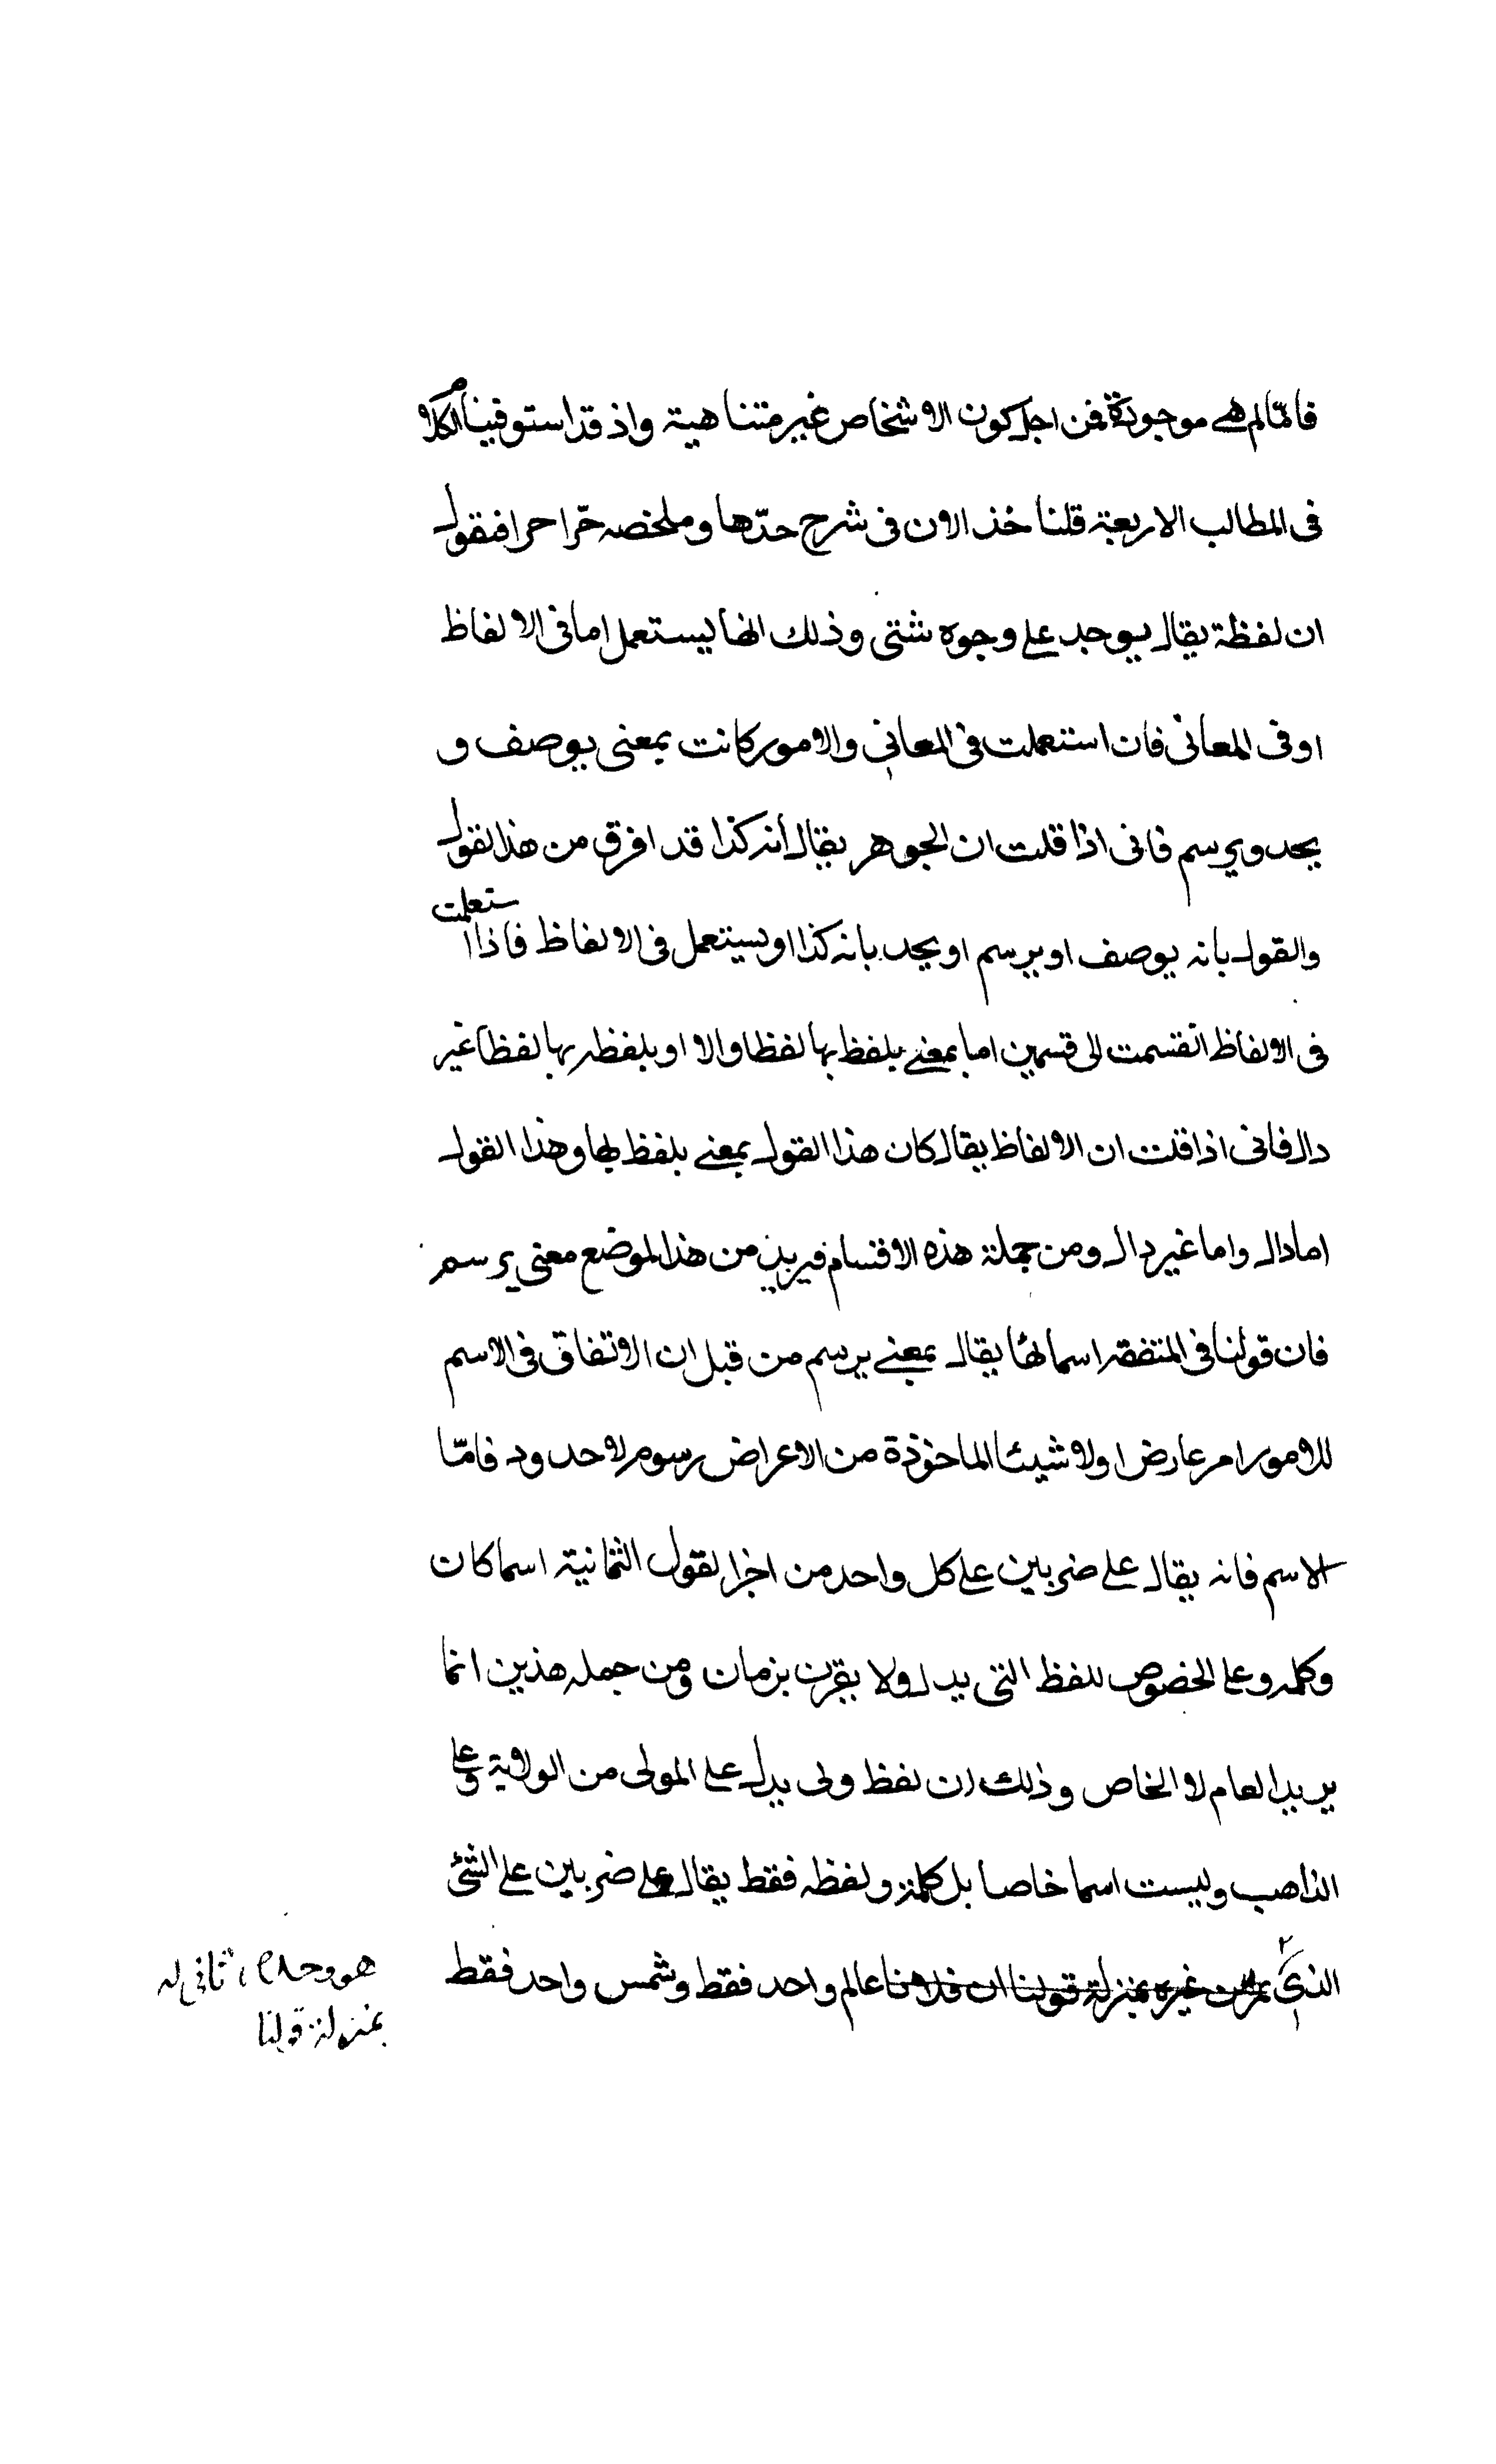 فامّا لم هى موجودة فمن اجل كون الاشخاص غير متناهية واذ قد استوفينا الكلام
فى المطالب الاربعة قلنا خذ الان فى شرح حدّها وملخصه حرا حرا فنقول
ان لفظة يقال يوجد على وجوه شتى وذلك انها ليستعمل اما فى الالفاظ
او فى المعانى فان استعملت فى المعانى والامور كانت بمعنى يوصف و
يحد ويرسم فانى اذا قلت ان الجوهر يقال أنه كذا قد افرق من هذا لقول
والقول بانه يوصف او يرسم او يحد بانه كذا او يستعمل فى الالفاظ فاذا استعملت
فى الالفاظ انقسمت الى قسمين اما بمعنى يلفظ بها لفظا والا او يلفظ بها لفظا غير
دال فانى اذا قلت ان الالفاظ يقال كان هذا القول بمعنى يلفظ بها وهذا القول
اما دال واما غير دال ومن جملة هذه الاقسام فيريد من هذا لموضع معنى يرسم
فان قولنا فى المتفقه اسمائها يقال بمعنى يرسم من قبل ان الاتفاق فى الاسم
للامور امر عارض اولا شيئا الماخوذة من الاعراض رسوم لا حدود فامّا
الاسم فانه يقال على ضربين على كل واحد من اجزا لقول الثمانية اسما كان
وكلمه وعلى الخصوص للفظ التى يدل ولا يقرن بزمان ومن جمله هذين انما
يريد العام لا الخاص وذلك ان لفظ ولى يدل على المولى من الولاية وعلى
الذاهب وليست اسما خاصا بل كلمة ولفظه فقط يقال على ضربين على الشئ
الذى غيره بمنزلة قولنا ان فلاهنا عالم واحد فقط وشمس واحد فقط
هو وحده لا ثانى له
بمنزلة قولنا